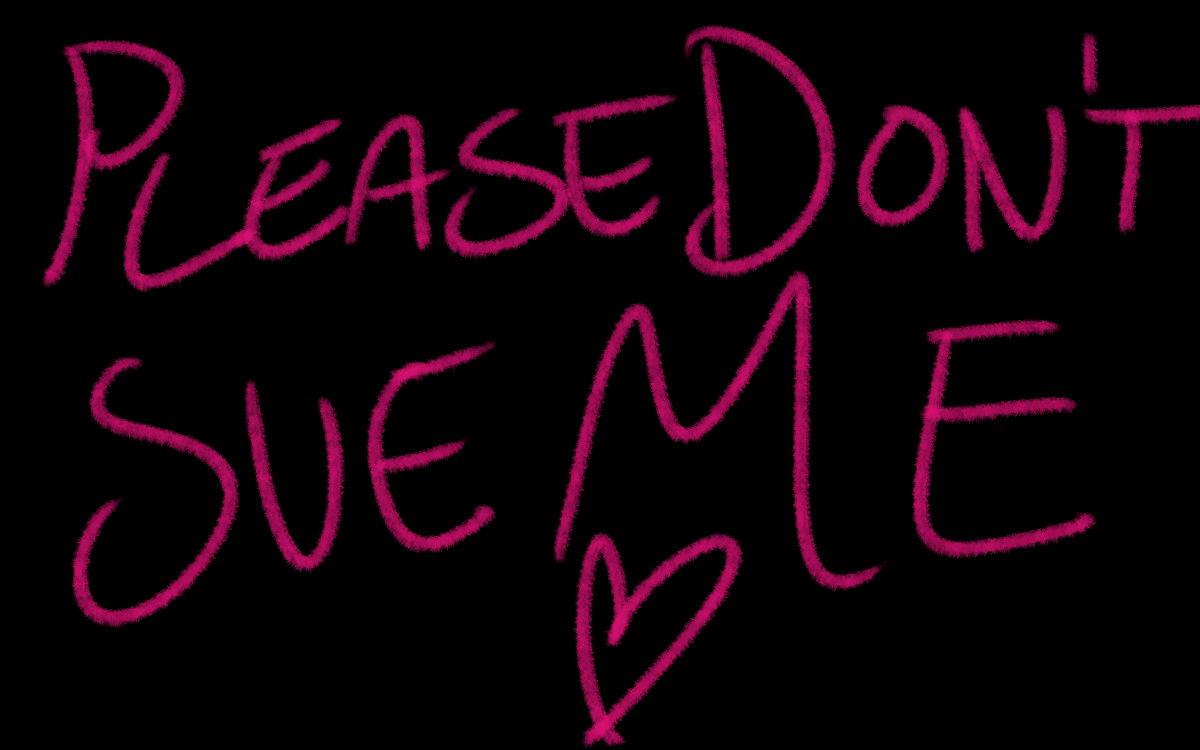 PLEASE DON'T
SUE ME